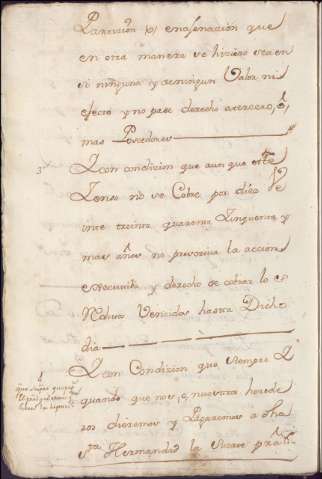 Partision o enagenacion que
en otra manera se hisiere sea en
si ninguna y de ningun Valor ni
efecto y no pase derecho a tercero, ô
mas Poseedores
3ª
Y con condision que aun que este
Senso no se Cobre por diez Ve
inte treinta quarenta Zinquenta y
mas años no prescriva la accion
executiva y derecho de cobrar lo
Reditos Vencidos hasta Dicho
dia
Y con Condision que siempre Y
quando que nos, o nuestros herede
ros dieremos y Pagaremos a dha
Sta Hermandad la Suerte pral